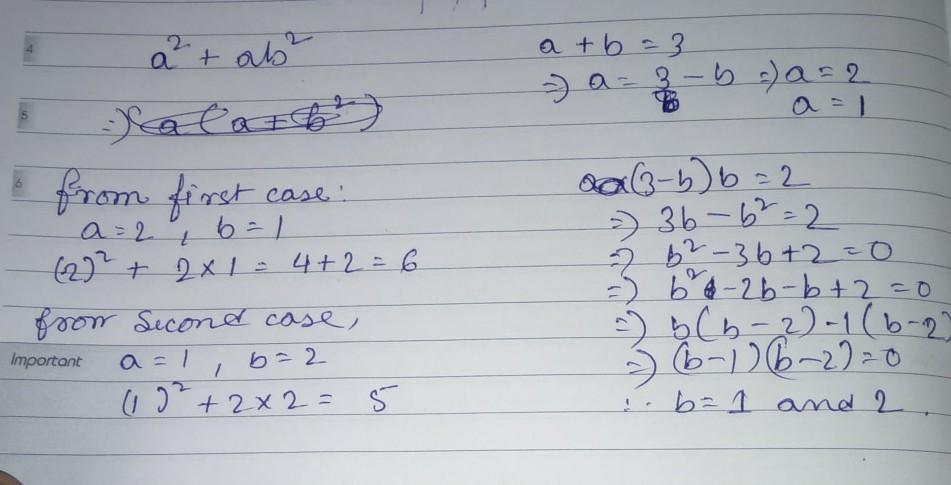 4
a² + ab²
5
6 from first case:
a = 2 , b = 1
(2)² + 2×1 = 4+2 = 6
from Second case,
Important a = 1 , b = 2
(1)² + 2×2 = 5
a + b = 3
⇒ a = 3 - b ⇒ a = 2
a = 1
(3-b)b = 2
⇒ 3b - b² = 2
⇒ b² - 3b + 2 = 0
⇒ b² - 2b - b + 2 = 0
⇒ b(b - 2) - 1(b-2)
⇒ (b-1)(b-2) = 0
∴ b = 1 and 2.